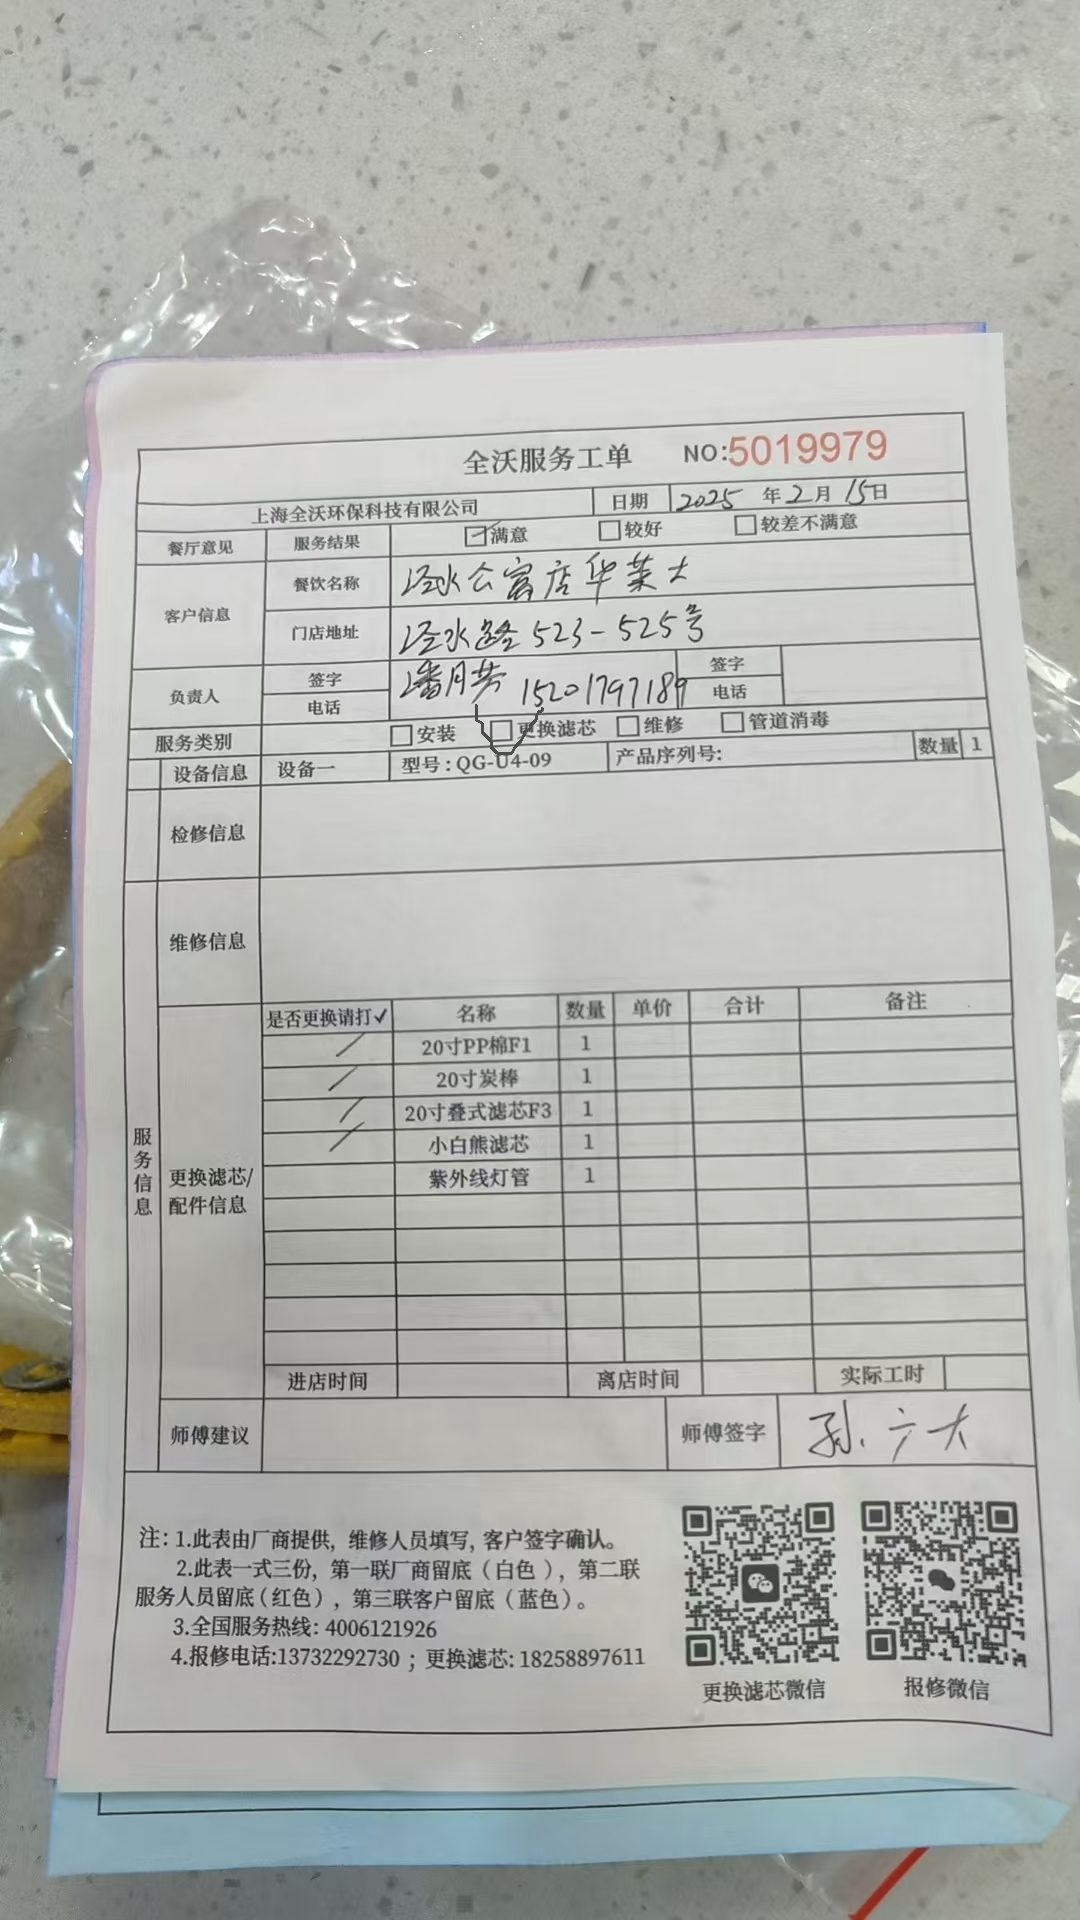 全沃服务工单 NO:5019979
上海全沃环保科技有限公司 日期 2025 年 2 月 15 日
餐厅意见 服务结果 满意 较好 较差不满意
客户信息 餐饮名称 泾水公寓店华莱士
门店地址 泾水路 523-525号
负责人 签字 潘月 签字
电话 15201797189 电话
服务类别 安装 更换滤芯 维修 管道消毒
设备信息 设备一 型号:QG-U4-09 产品序列号: 数量 1
检修信息
维修信息
服务信息
更换滤芯/配件信息
是否更换请打✓ 名称 数量 单价 合计 备注
/ 20寸PP棉F1 1
/ 20寸炭棒 1
/ 20寸叠式滤芯F3 1
/ 小白熊滤芯 1
紫外线灯管 1
进店时间 离店时间 实际工时
师傅建议 师傅签字 孙六大
注:1.此表由厂商提供，维修人员填写，客户签字确认。
2.此表一式三份，第一联厂商留底（白色），第二联
服务人员留底(红色)，第三联客户留底（蓝色）。
3.全国服务热线: 4006121926
4.报修电话:13732292730 ；更换滤芯: 18258897611
更换滤芯微信 报修微信